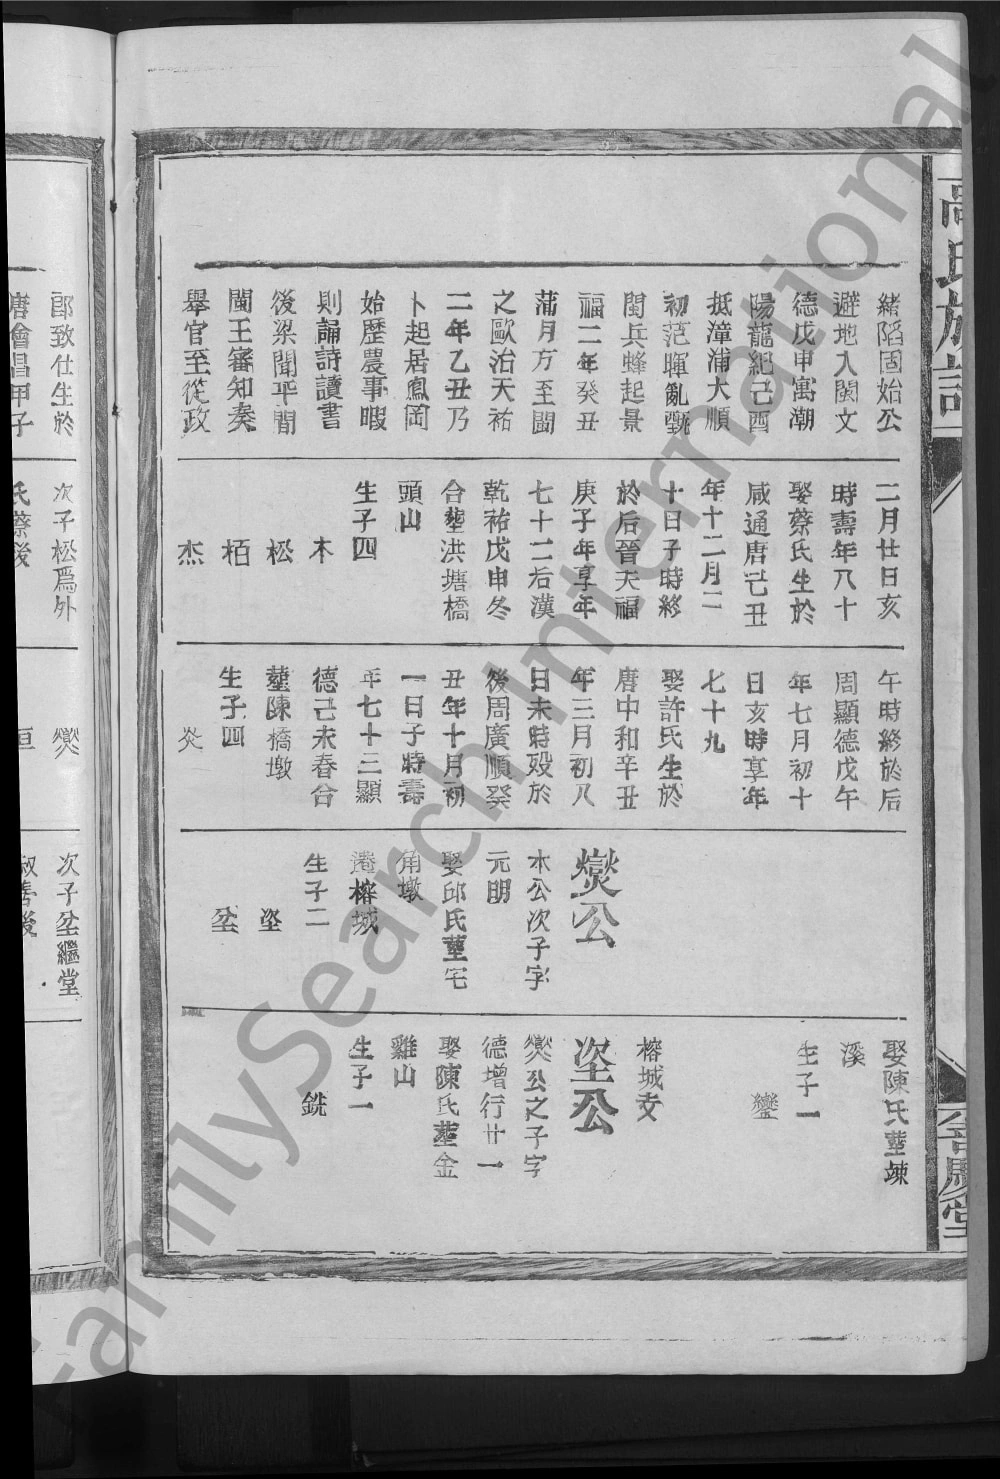 高氏族譜
緒陷固始公
避地入閩文
德戊申寓潮
陽龍紀己酉
抵漳浦大順
初范暉亂甌
閩兵蜂起景
福二年癸丑
蒲月方至閩
之歐冶天祐
二年乙丑乃
卜起居鳳岡
始歷農事暇
則誦詩讀書
後梁開平間
閩王審知奏
舉官至從政
二月廿日亥
時壽年八十
娶蔡氏生於
咸通唐己丑
年十二月二
十日子時終
於后晉天福
庚子年享年
七十二后漢
乾祐戊申冬
合塟洪塘橋
頭山
生子四
木
松
栢
杰
午時終於后
周顯德戊午
年七月初十
日亥時享年
七十九
娶許氏生於
唐中和辛丑
年三月初八
日未時歿於
後周廣順癸
丑年十月初
一日子時壽
年七十三顯
德己未春合
塟陳橋墩
生子四
炎
爕公
木公次子字
元明
娶邱氏塟宅
角墩
遷榕城
生子二
垐
坔
娶陳氏塟竦
溪
生子一
榕城支
垐公
爕公之子字
德增行廿一
娶陳氏塟金
雞山
生子一
銑
郎致仕生於
唐會昌甲子
次子松爲外
氏蔡後
爕
次子坔繼堂
叔善後
FamilySearch International